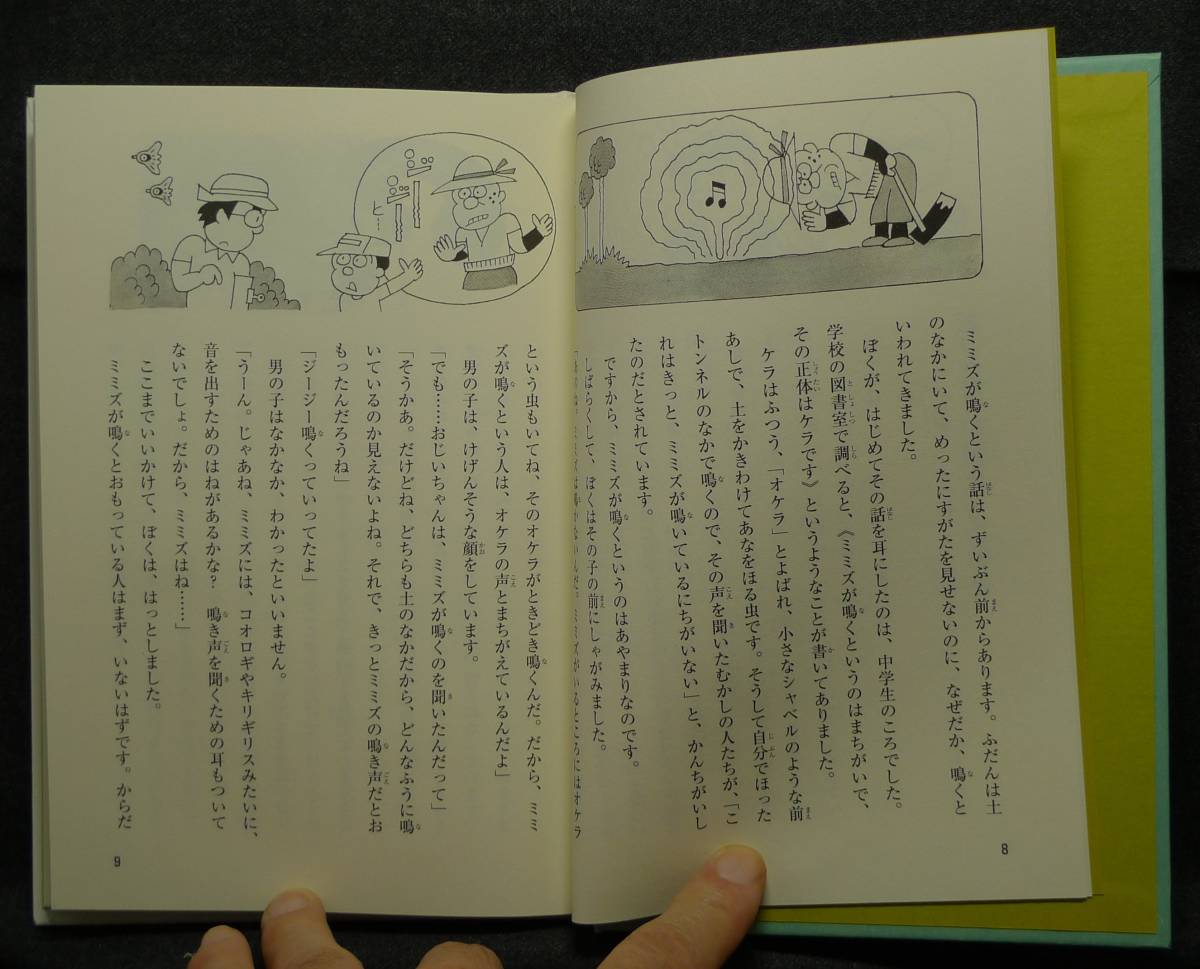 ミミズが鳴くという話は、ずいぶん前からあります。ふだんは土
のなかにいて、めったにすがたを見せないのに、なぜだか、鳴くと
いわれてきました。
ぼくが、はじめてその話を耳にしたのは、中学生のころでした。
学校の図書室で調べると、《ミミズが鳴くというのはまちがいで、
その正体はケラです》というようなことが書いてありました。
ケラはふつう、「オケラ」とよばれ、小さなシャベルのような前
あしで、土をかきわけてあなをほる虫です。そうして自分でほった
トンネルのなかで鳴くので、その声を聞いたむかしの人たちが、「こ
れはきっと、ミミズが鳴いているにちがいない」と、かんちがいし
たのだとされています。
ですから、ミミズが鳴くというのはあやまりなのです。
しばらくして、ぼくはその子の前にしゃがみました。
ミミズは鳴かないんだ。ミミズがいるところにはオケラ
8
ジージー
ヒー
という虫もいてね、そのオケラがときどき鳴くんだ。だから、ミミ
ズが鳴くという人は、オケラの声とまちがえているんだよ」
男の子は、けげんそうな顔をしています。
「でも……おじいちゃんは、ミミズが鳴くのを聞いたんだって」
「そうかあ。だけどね、どちらも土のなかだから、どんなふうに鳴
いているのか見えないよね。それで、きっとミミズの鳴き声だとお
もったんだろうね」
「ジージー鳴くっていってたよ」
男の子はなかなか、わかったといいません。
「うーん。じゃあね、ミミズには、コオロギやキリギリスみたいに、
音を出すためのはねがあるかな？　鳴き声を聞くための耳もついて
ないでしょ。だから、ミミズはね……」
ここまでいいかけて、ぼくは、はっとしました。
ミミズが鳴くとおもっている人はまず、いないはずです。からだ
9